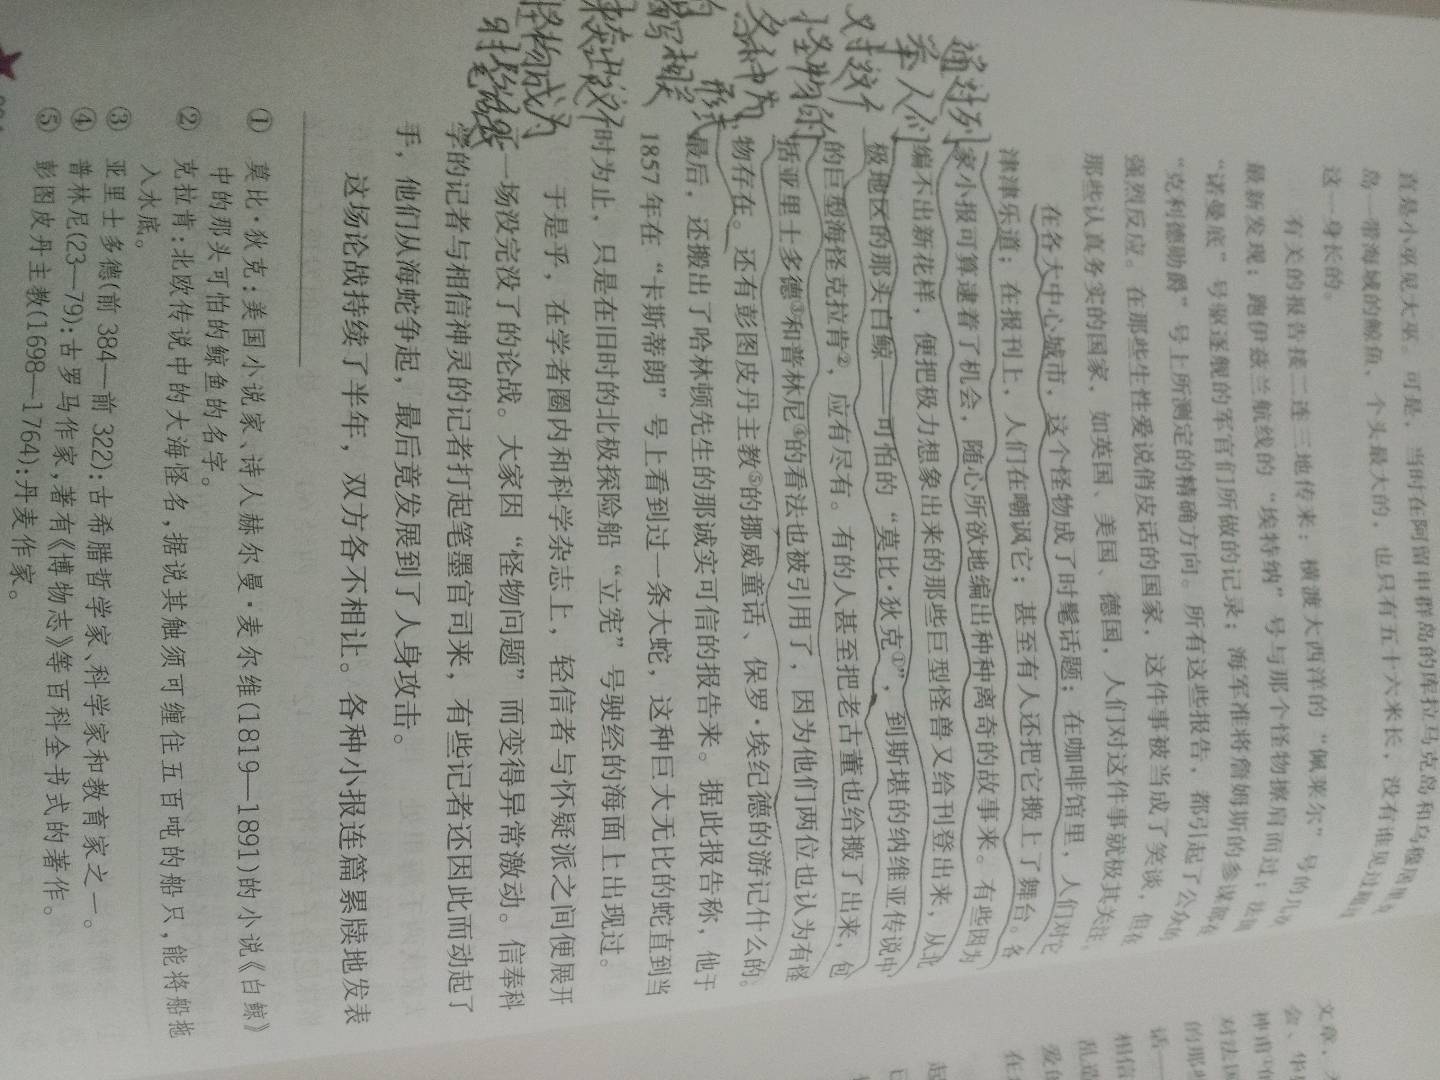 直是小巫见大巫。可是，当时在阿留申群岛的库拉马克岛和乌穆居里克
岛一带海域的鲸鱼，个头最大的，也只有五十六米长，没有谁见过超过
这一身长的。
有关的报告接二连三地传来：横渡大西洋的“佩莱尔”号的几次
最新发现；跑伊兹兰航线的“埃特纳”号与那个怪物擦肩而过；法国
“诺曼底”号驱逐舰的军官们所做的记录；海军准将詹姆斯的参谋部在
“克利德勋爵”号上所测定的精确方向。所有这些报告，都引起了公众的
强烈反应。在那些生性爱说俏皮话的国家，这件事被当成了笑谈，但在
那些认真务实的国家，如英国、美国、德国，人们对这件事就极其关注。
在各大中心城市，这个怪物成了时髦话题；在咖啡馆里，人们对它
津津乐道；在报刊上，人们在嘲讽它；甚至有人还把它搬上了舞台。各
家小报可算逮着了机会，随心所欲地编出种种离奇的故事来。有些因为
编不出新花样，便把极力想象出来的那些巨型怪兽又给刊登出来，从北
极地区的那头白鲸——可怕的“莫比·狄克①”，到斯堪的纳维亚传说中
的巨型海怪克拉肯②，应有尽有。有的人甚至把老古董也给搬了出来，包
括亚里士多德③和普林尼④的看法也被引用了，因为他们两位也认为有怪
物存在。还有彭图皮丹主教⑤的挪威童话、保罗·埃纪德的游记什么的。
最后，还搬出了哈林顿先生的那诚实可信的报告来。据此报告称，他于
1857年在“卡斯蒂朗”号上看到过一条大蛇，这种巨大无比的蛇直到当
时为止，只是在旧时的北极探险船“立宪”号驶经的海面上出现过。
于是乎，在学者圈内和科学杂志上，轻信者与怀疑派之间便展开
一场没完没了的论战。大家因“怪物问题”而变得异常激动。信奉科
学的记者与相信神灵的记者打起笔墨官司来，有些记者还因此而动起了
手，他们从海蛇争起，最后竟发展到了人身攻击。
这场论战持续了半年，双方各不相让。各种小报连篇累牍地发表
① 莫比·狄克：美国小说家、诗人赫尔曼·麦尔维(1819—1891)的小说《白鲸》
中的那头可怕的鲸鱼的名字。
② 克拉肯：北欧传说中的大海怪名，据说其触须可缠住五百吨的船只，能将船拖
入水底。
③ 亚里士多德(前384—前322)：古希腊哲学家、科学家和教育家之一。
④ 普林尼(23—79)：古罗马作家，著有《博物志》等百科全书式的著作。
⑤ 彭图皮丹主教(1698—1764)：丹麦作家。
通过列
举人们
对这个
怪物的
各种
形式
的
描写相关
来突出这个
怪物成为
时髦话题
文章，
会、华
神甫
对法国
的那些
话——
相信
乱造
爱的
在
起